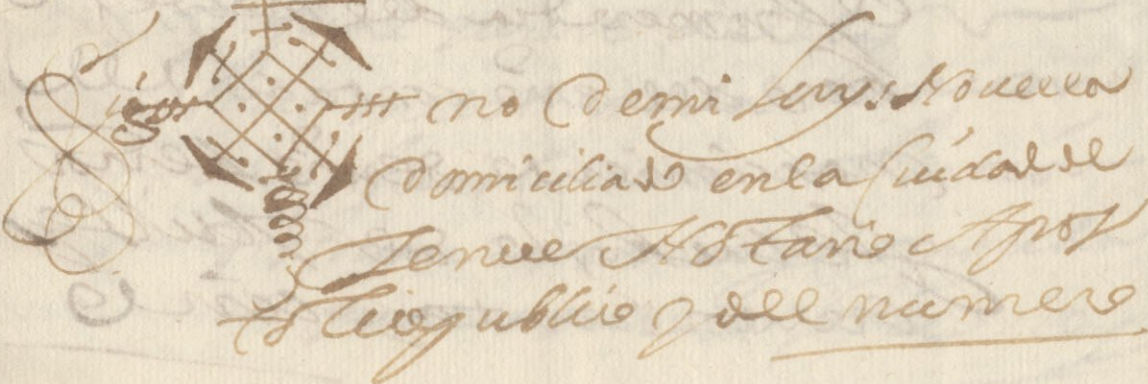 Sig no de mi Luys Novella
Domiciliado en la Ciudad de
Teruel Notario Apos
tolico publico y del numero